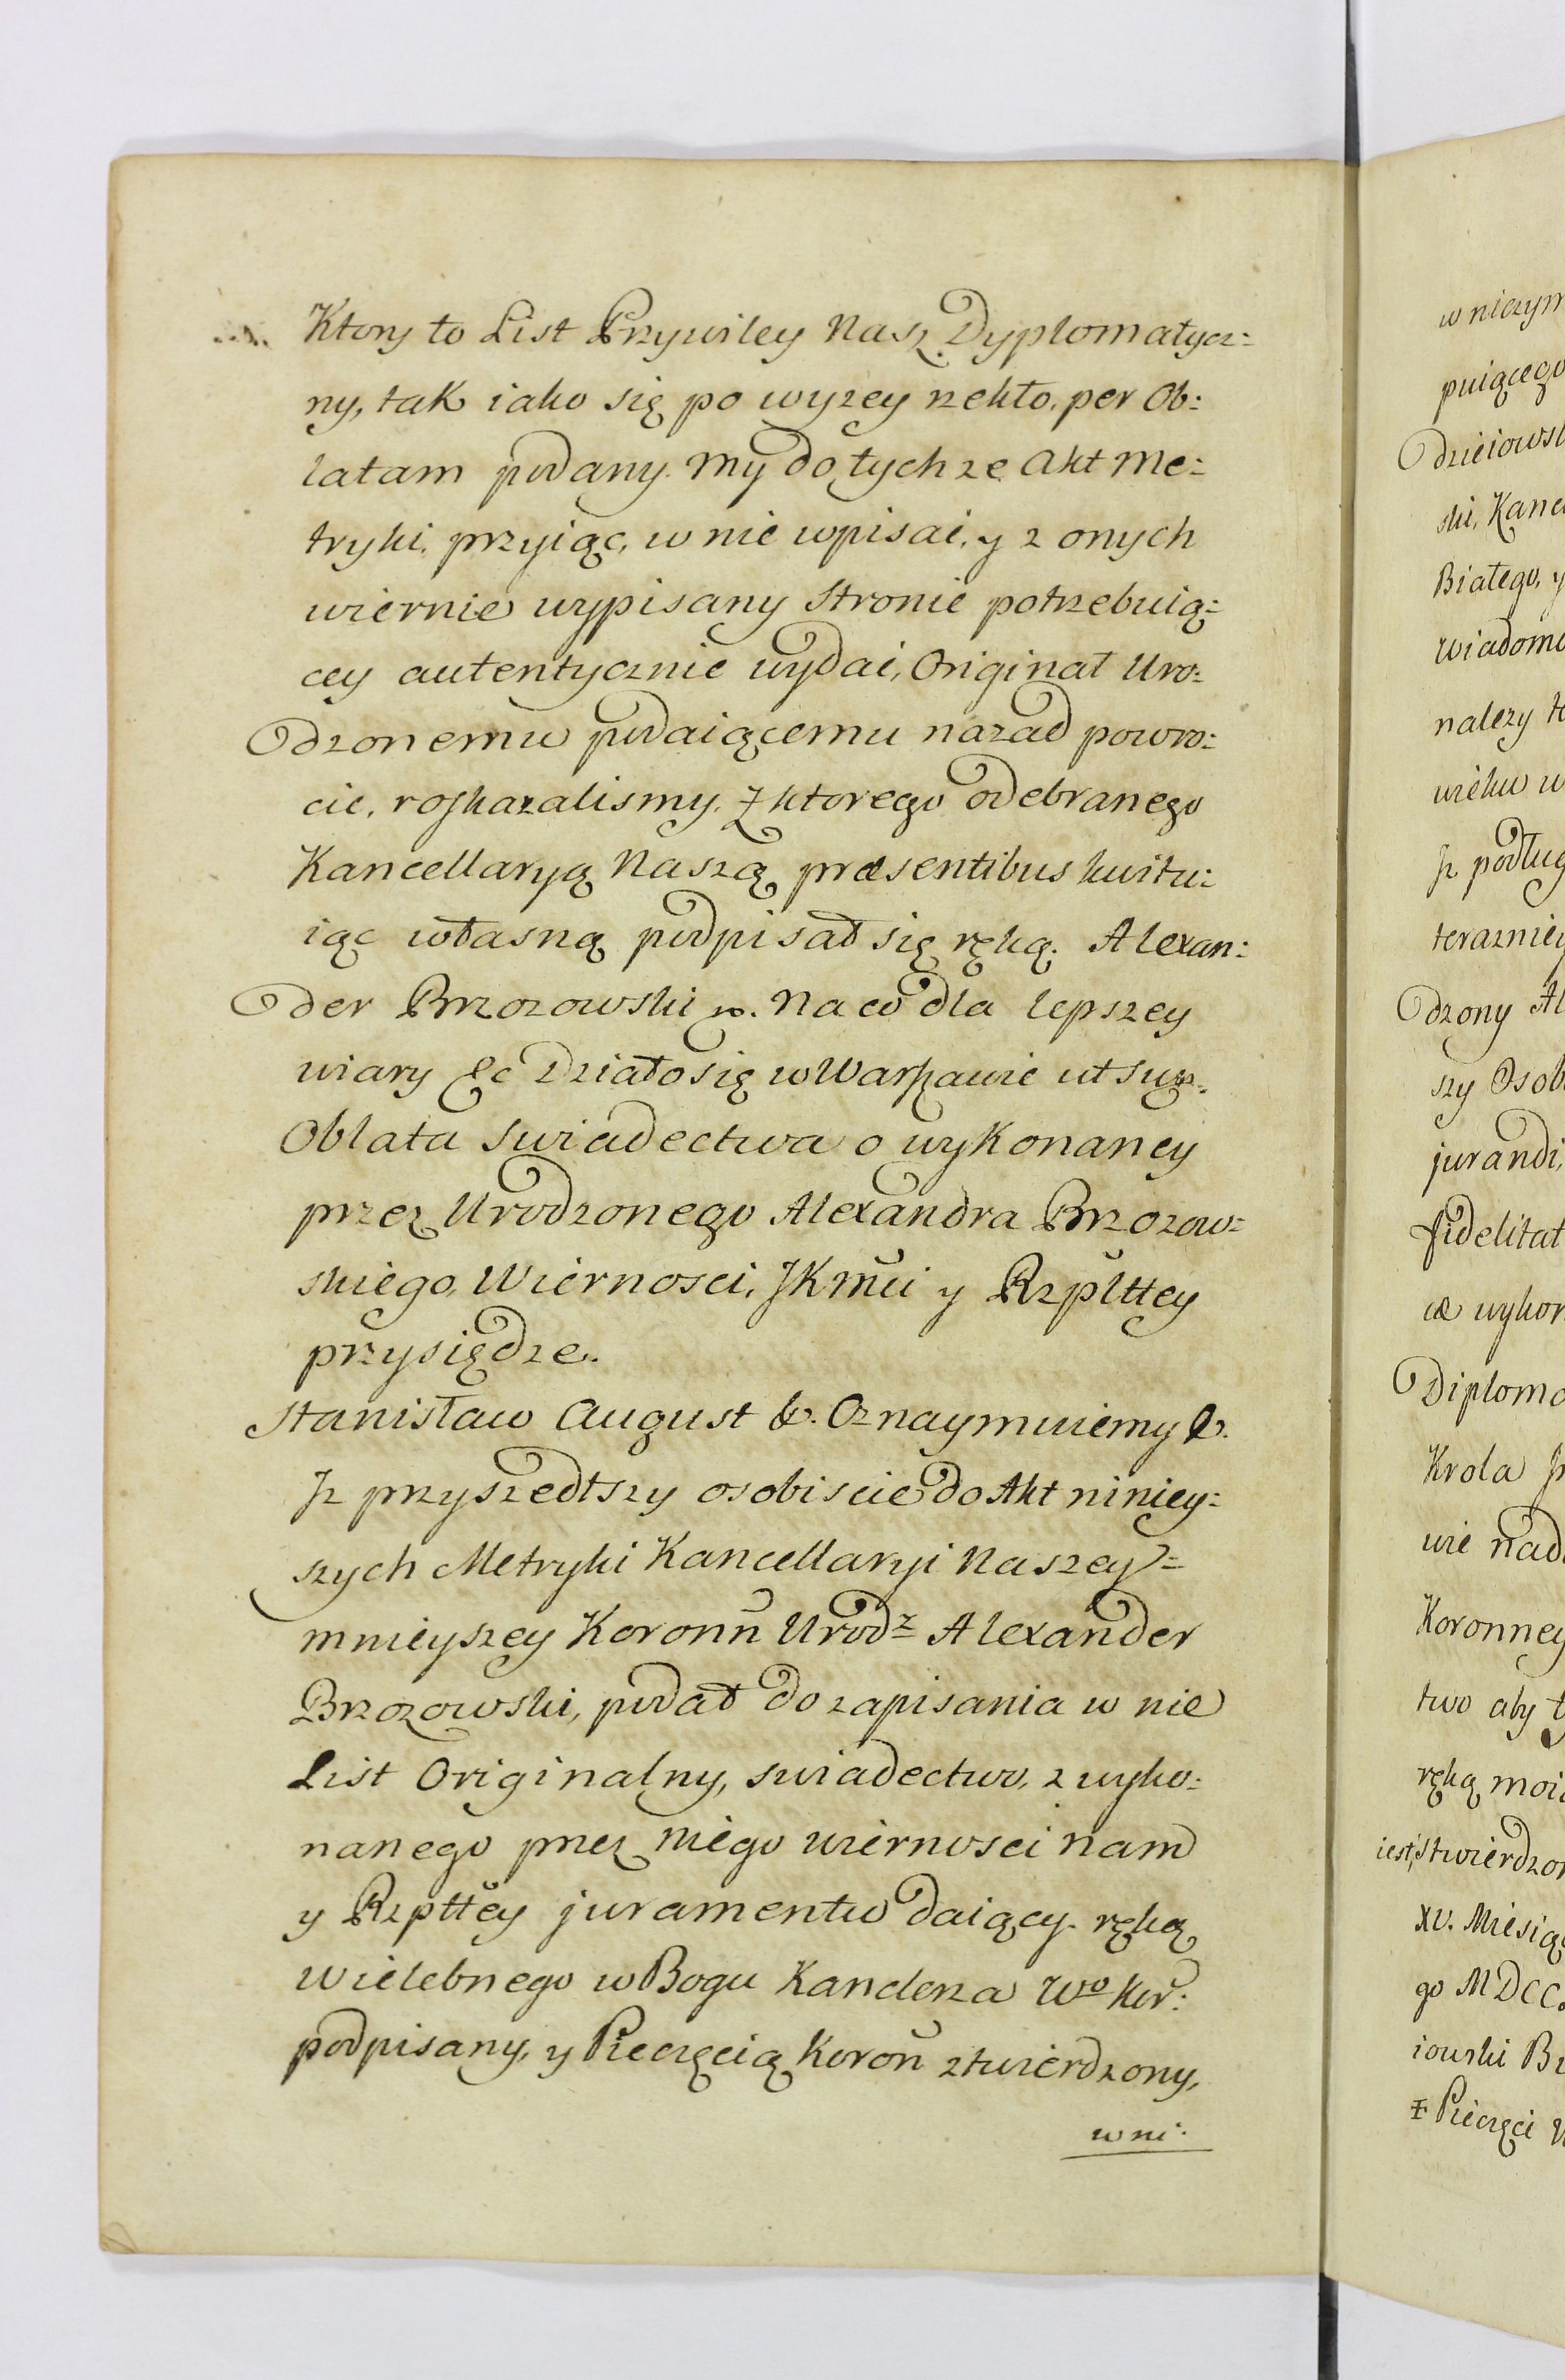 Ktory to List Przywiley Nasz Dyplomatycz:
ny, tak iako się po wyzey rzekło, per Ob:
latam podany. My do tychze Akt Me:
tryki, przyiąc, w nie wpisai, y z onych
wiernie wypisany Stronie potrzebuią:
cey autentycznie wydai, Originał Uro:
dzonemu podaiącemu nazad powro:
cic, roskazalismy. Z ktorego odebranego
Kancellaryą Naszą præsentibus kwitu:
iąc własną podpisał się ręką. Alexan:
der Brzozowski . Na co dla lepszey
wiary &c Działo się w Warszawie ut sup.
Oblata Swiadectwa o wykonaney
przez Urodzonego Alexandra Brzozow:
skiego, Wiernosci, JKmci y Rzplttey
przysiędze.
Stanisław August &. Oznaymuiemy &.
Jz przyszedłszy osobiscie do Akt niniey:
szych Metryki Kancellaryi Naszey =
mnieyszey Koronn Urodz Alexander
Brzozowski, podał do zapisania w nie
List Originalny, swiadectwo, z wyko:
nanego przez niego wiernosci nam
y Rzpttey juramentu daiący. ręką
Wielebnego w Bogu Kanclerza Wo Kor:
podpisany, y Pieczęcią Koron ztwierdzony,
w ni:
w niczym
puiącego
dzieiowsk
ski, Kanc
Białego, y
wiadomo
nalezy
wieku w
Jz podług
terazniey
dzony Al
szy Osob
jurandi,
fidelitat
cæ wykon
Diploma
Krola
wie nad
Koronney
two aby
ręką moi
iest, stwierdzon
XV. Miesiąc
go MDCC
iowski Br
Pieczęci